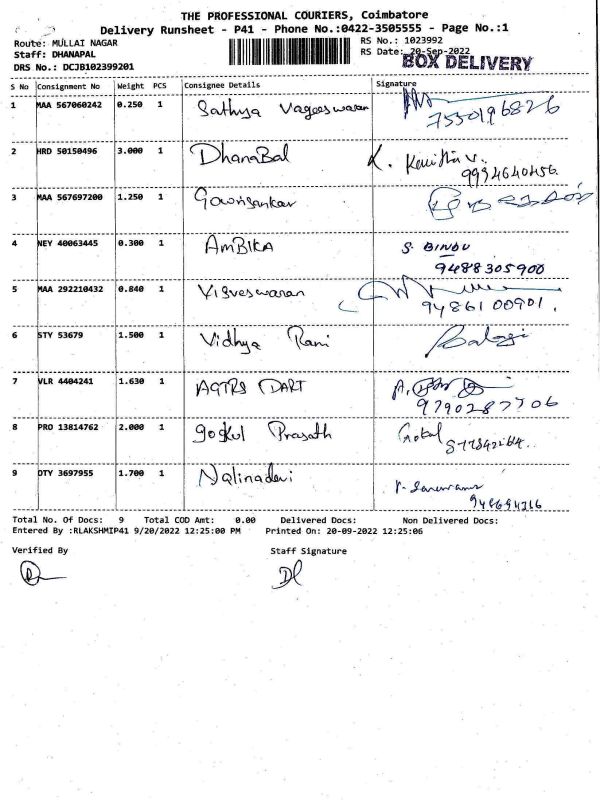 THE PROFESSIONAL COURIERS, Coimbatore
Delivery Runsheet - P41 - Phone No.:0422-3505555 - Page No.:1
Route: MULLAI NAGAR
RS No.: 1023992
Staff: DHANAPAL
RS Date: 20-Sep-2022
BOX DELIVERY
DRS No.: DCJB102399201
S No Consignment No Weight PCS Consignee Details Signature
1 MAA 567060242 0.250 1 Sathya Vageeswaran
7550196826
2 HRD 50150496 3.000 1 DhanaBal K. Kavitha V.
9994640456.
3 MAA 567697200 1.250 1 Gowrisankar
4 NEY 40063445 0.300 1 AMBIKA S. BINDU
9488305900
5 MAA 292210432 0.840 1 Visveswaran
9486100901.
6 STY 53679 1.500 1 Vidhya Rani Balaji
7 VLR 4404241 1.630 1 AGTRS DART
9790287706
8 PRO 13814762 2.000 1 gokul Prasath Gokul
9 DTY 3697955 1.700 1 Nalinadevi
Total No. Of Docs: 9 Total COD Amt: 0.00 Delivered Docs: Non Delivered Docs:
Entered By :RLAKSHMIP41 9/20/2022 12:25:00 PM Printed On: 20-09-2022 12:25:06
Verified By Staff Signature